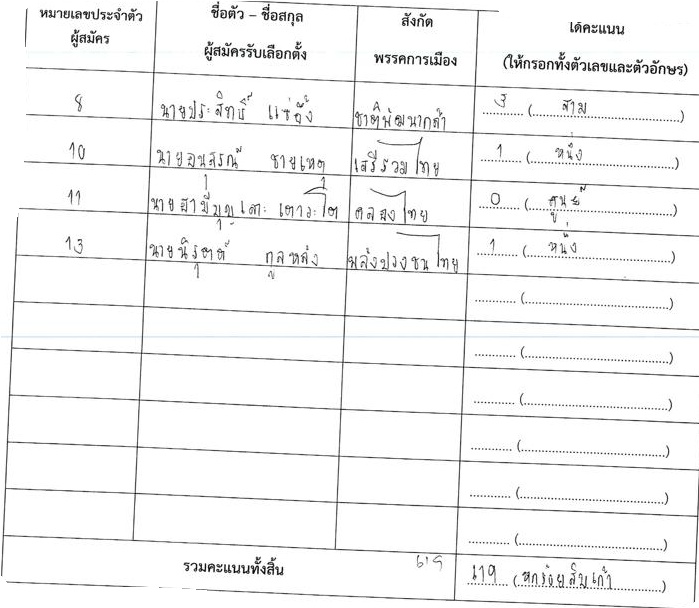 หมายเลขประจำตัว
ผู้สมัคร
ชื่อตัว – ชื่อสกุล
ผู้สมัครรับเลือกตั้ง
สังกัด
พรรคการเมือง
ได้คะแนน
(ให้กรอกทั้งตัวเลขและตัวอักษร)
8 นายประสิทธิ์ แซ่อึ้ง ชาติพัฒนากล้า 3 (สาม)
10 นายอนุสรณ์ ชายเหตุ เสรีรวมไทย 1 (หนึ่ง)
11 นาย คลองไทย 0 (ศูนย์)
13 นายนิรุตต์ กูลหลัง พลังปวงชนไทย 1 (หนึ่ง)
........... (..............................)
........... (..............................)
........... (..............................)
........... (..............................)
........... (..............................)
........... (..............................)
รวมคะแนนทั้งสิ้น 619 619 (หกร้อยสิบเก้า)